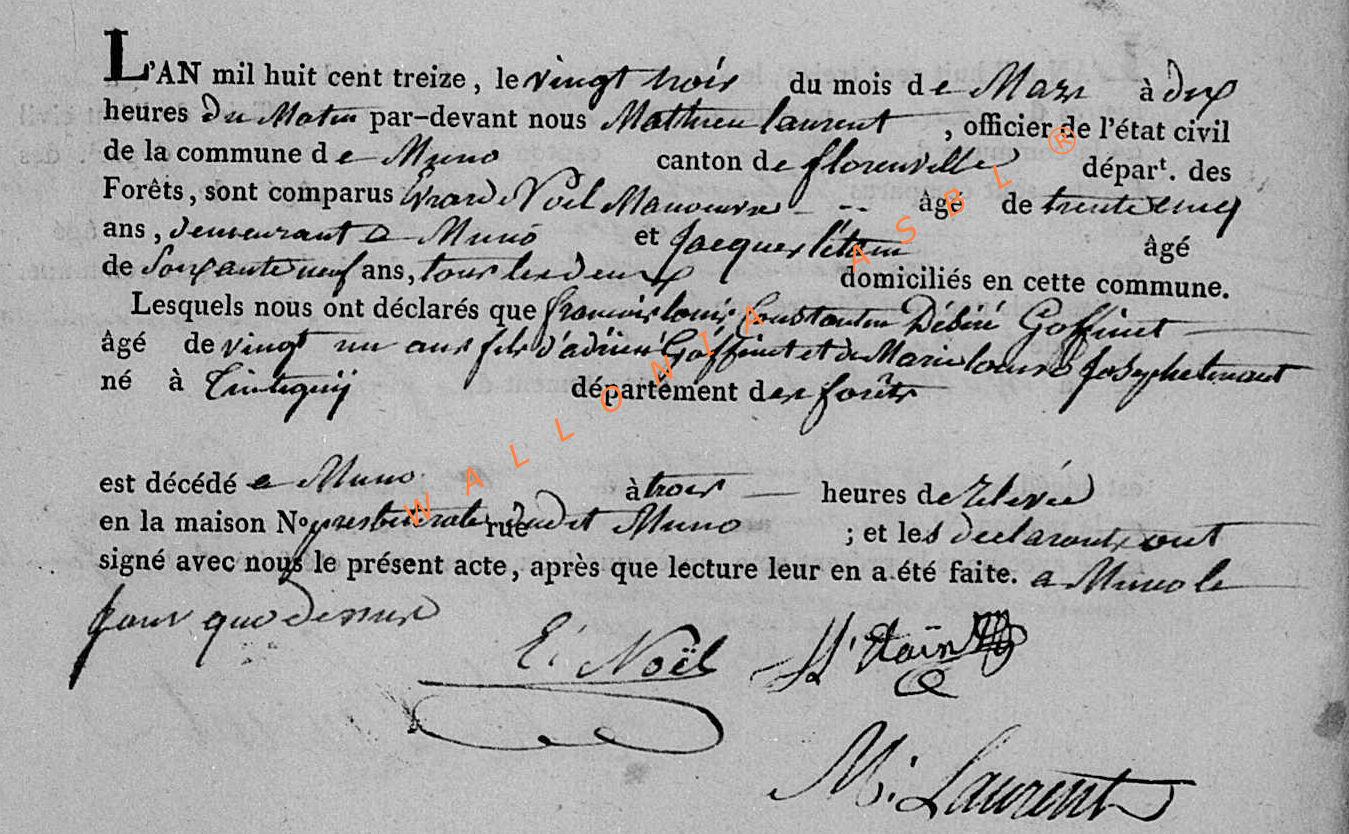 L'AN mil huit cent treize, le vingt trois du mois de Mars à dix
heures du Matin par-devant nous Mathieu laurent, officier de l'état civil
de la commune de Muno canton de florenville départ. des
Forêts, sont comparus Evrard Noël Manoeuvre âgé de trente cinq
ans, demeurant a Muno et Jacques l'étain âgé
de Soixante neuf ans, tous les deux domiciliés en cette commune.
Lesquels nous ont déclarés que françois louis Constantin Désiré Goffinet
âgé de vingt un ans fils d'adrien Goffinet et de Marie louise Josephe
né à Tintigny département des forêts
est décédé a Muno à trois heures de relevée
en la maison No presbiterale rue dudit Muno ; et les declarants ont
signé avec nous le présent acte, après que lecture leur en a été faite. a Muno le
jour que dessus
E. Noël L'Etain
M. Laurent
WALLONIA ASBL ®